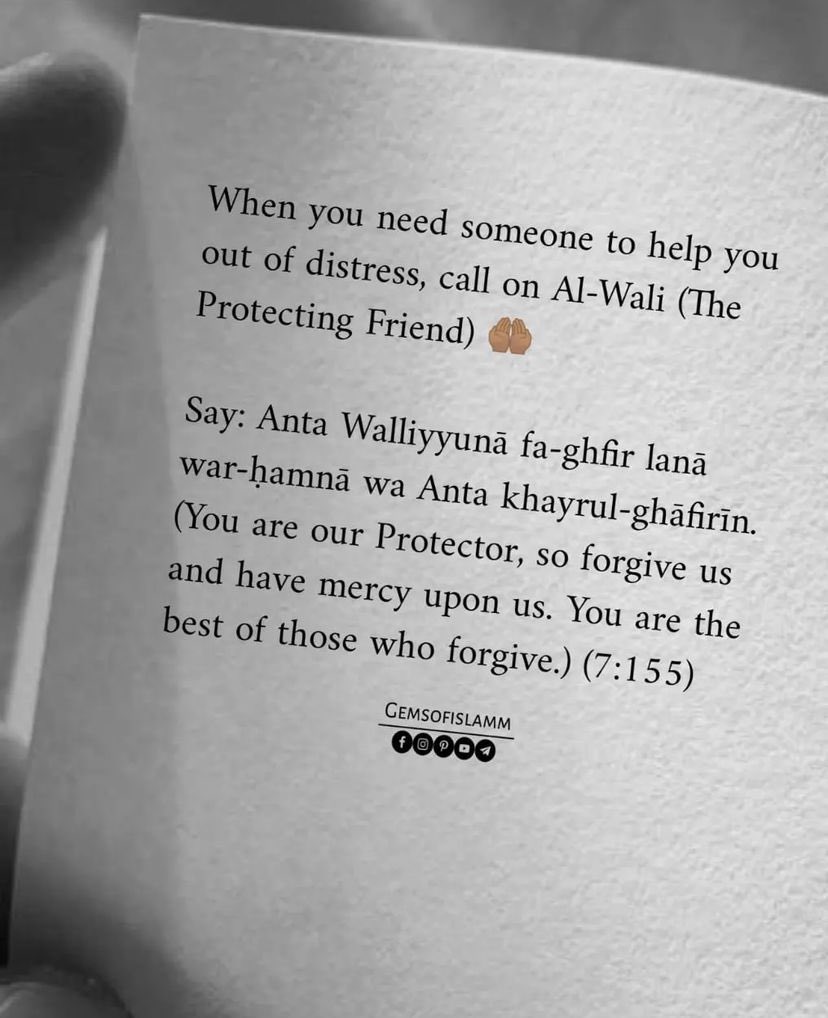 When you need someone to help you
out of distress, call on Al-Wali (The
Protecting Friend) 🤲🏽
Say: Anta Walliyyunā fa-ghfir lanā
war-ḥamnā wa Anta khayrul-ghāfirīn.
(You are our Protector, so forgive us
and have mercy upon us. You are the
best of those who forgive.) (7:155)
Gemsofislamm